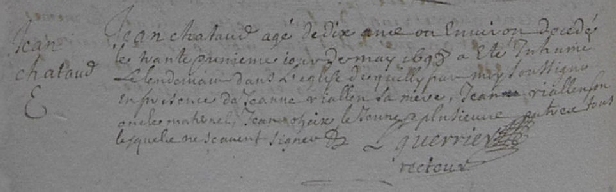 Jean
chataud
Jean chataud agé de dix ans ou Environ decedé
le trante premieme jour de may 1693 a Eté Inhumé
Le lendemain dans L'eglise par moy Soussigné
En presence de Jeanne viallen sa mere, Jean viallen son
oncle maternel, Jean le Jeune, plusieurs autres tous
lesquels ne scavent signer
L guerrier
recteur